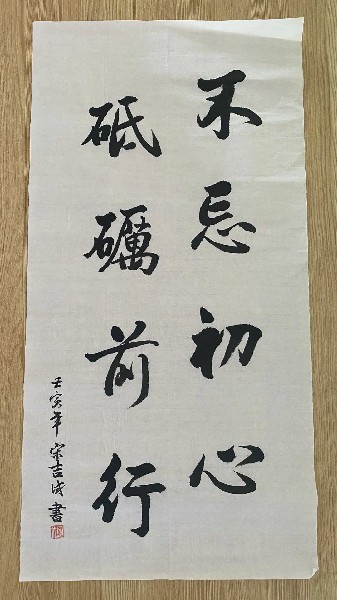 不忘初心
砥礪前行
壬寅年宋吉成書